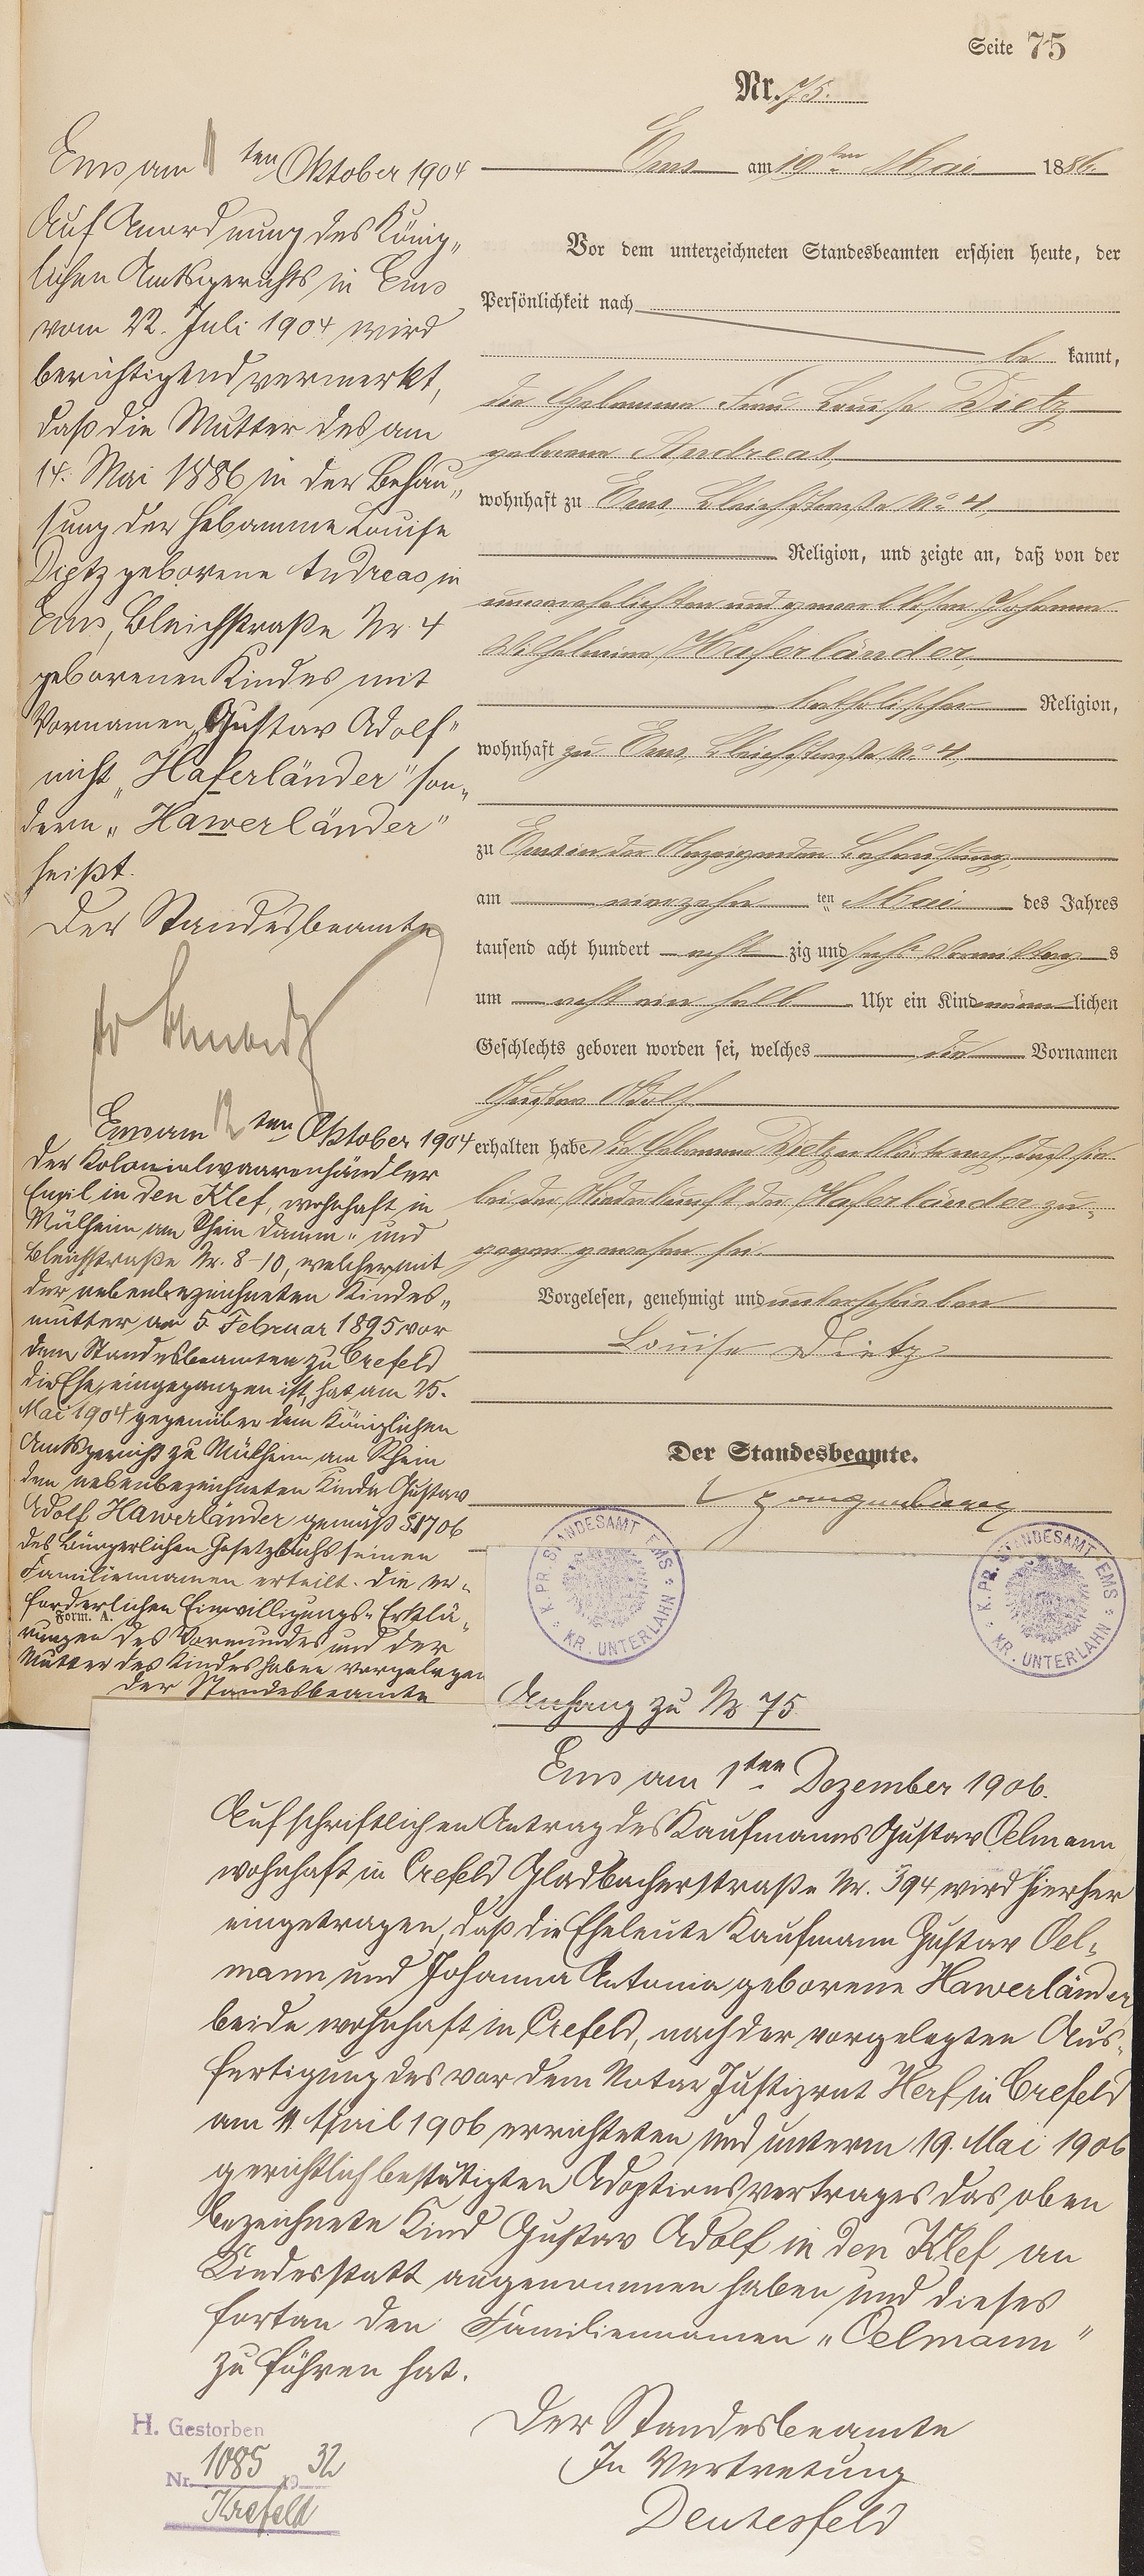 Seite 75
Nr. 75.
Ems am 19ten Mai 1886.
Vor dem unterzeichneten Standesbeamten erschien heute, der
Persönlichkeit nach
be kannt,
die Hebamme Frau Louise Dietz
geborene Andreas,
wohnhaft zu Ems, Bleichstraße No 4,
Religion, und zeigte an, daß von der
unverehelichten und gewerblosen Johanna
Wilhelmine Haferländer,
katholischer Religion,
wohnhaft zu Ems, Bleichstraße No 4,
zu Ems in der Anzeigenden Behausung,
am vierzehn ten Mai des Jahres
tausend acht hundert acht zig und sechs Vormittag s
um acht ein halb Uhr ein Kind männ lichen
Geschlechts geboren worden sei, welches die Vornamen
Gustav Adolf
erhalten habe. Die Hebamme Dietz erklärte noch, daß sie
bei der Niederkunft der Haferländer zu-
gegen gewesen sei.
Vorgelesen, genehmigt und unterschrieben
Louise Dietz
Der Standesbeamte.
Ems am 11ten Oktober 1904
Auf Anordnung des König-
lichen Amtsgerichts in Ems
vom 22. Juli 1904 wird
berichtigend vermerkt,
daß die Mutter des am
14. Mai 1886 in der Behau-
sung der Hebamme Louise
Dietz geborene Andreas in
Ems, Bleichstraße Nr. 4
geborenen Kindes mit
Vornamen „Gustav Adolf"
nicht „Haferländer" son-
dern „Hawerländer"
heißt.
Der Standesbeamte
Ems am 12ten Oktober 1904
Der Kolonialwaarenhändler
Emil in den Klef, wohnhaft in
Mülheim am Rhein Damm- und
Bleichstraße Nr. 8-10, welcher mit
der nebenbezeichneten Kindes-
mutter am 5. Februar 1895 vor
dem Standesbeamten zu Crefeld
die Ehe eingegangen ist, hat am 25.
Mai 1904 gegenüber dem Königlichen
Amtsgericht zu Mülheim am Rhein
dem nebenbezeichneten Kinde Gustav
Adolf Hawerländer gemäß §1706
des Bürgerlichen Gesetzbuchs seinen
Familiennamen erteilt. Die er-
forderlichen Einwilligungs-Erklä-
Form. A.
rungen des Vormundes und der
Mutter des Kindes haben vorgelegen
Der Standesbeamte
K. PR. STANDESAMT EMS
KR. UNTERLAHN
K. PR. STANDESAMT EMS
KR. UNTERLAHN
Anhang zu No 75
Ems am 1ten Dezember 1906.
Auf schriftlichen Antrag des Kaufmanns Gustav Oelmann
wohnhaft in Crefeld Gladbacherstraße Nr. 394 wird hierher
eingetragen, daß die Eheleute Kaufmann Gustav Oel-
mann und Johanna Antonia geborene Hawerländer
beide wohnhaft in Crefeld, nach der vorgelegten Aus-
fertigung des vor dem Notar Justizrat Herf in Crefeld
am 11. April 1906 errichteten und unterm 19. Mai 1906
gerichtlich bestätigten Adoptionsvertrages das oben
bezeichnete Kind Gustav Adolf in den Klef an
Kindesstatt angenommen haben und dieses
fortan den Familiennamen „Oelmann"
zu führen hat.
Der Standesbeamte
In Vertretung
Deutesfeld
H. Gestorben
Nr. 1085 19 32
Krefeld